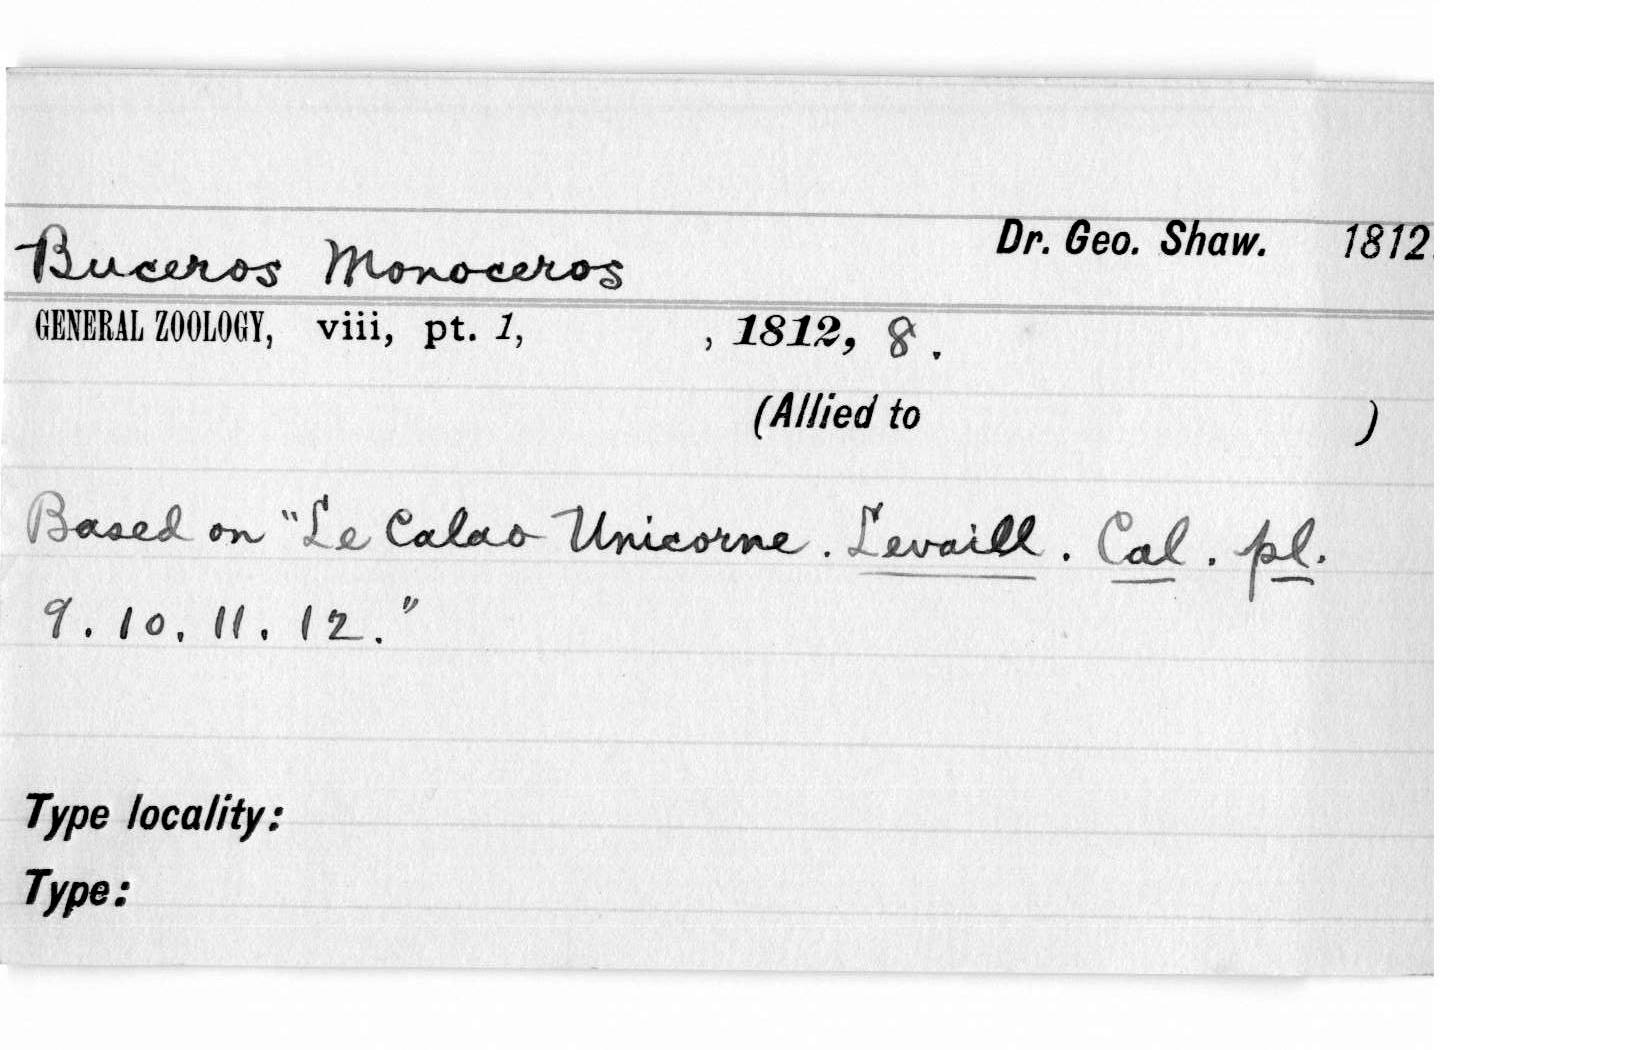 Buceros Monoceros Dr. Geo. Shaw. 1812.
GENERAL ZOOLOGY, viii, pt. 1, , 1812, 8.
(Allied to )
Based on "Le Calao Unicorne. Levaill. Cal. pl.
9. 10. 11. 12."
Type locality:
Type: